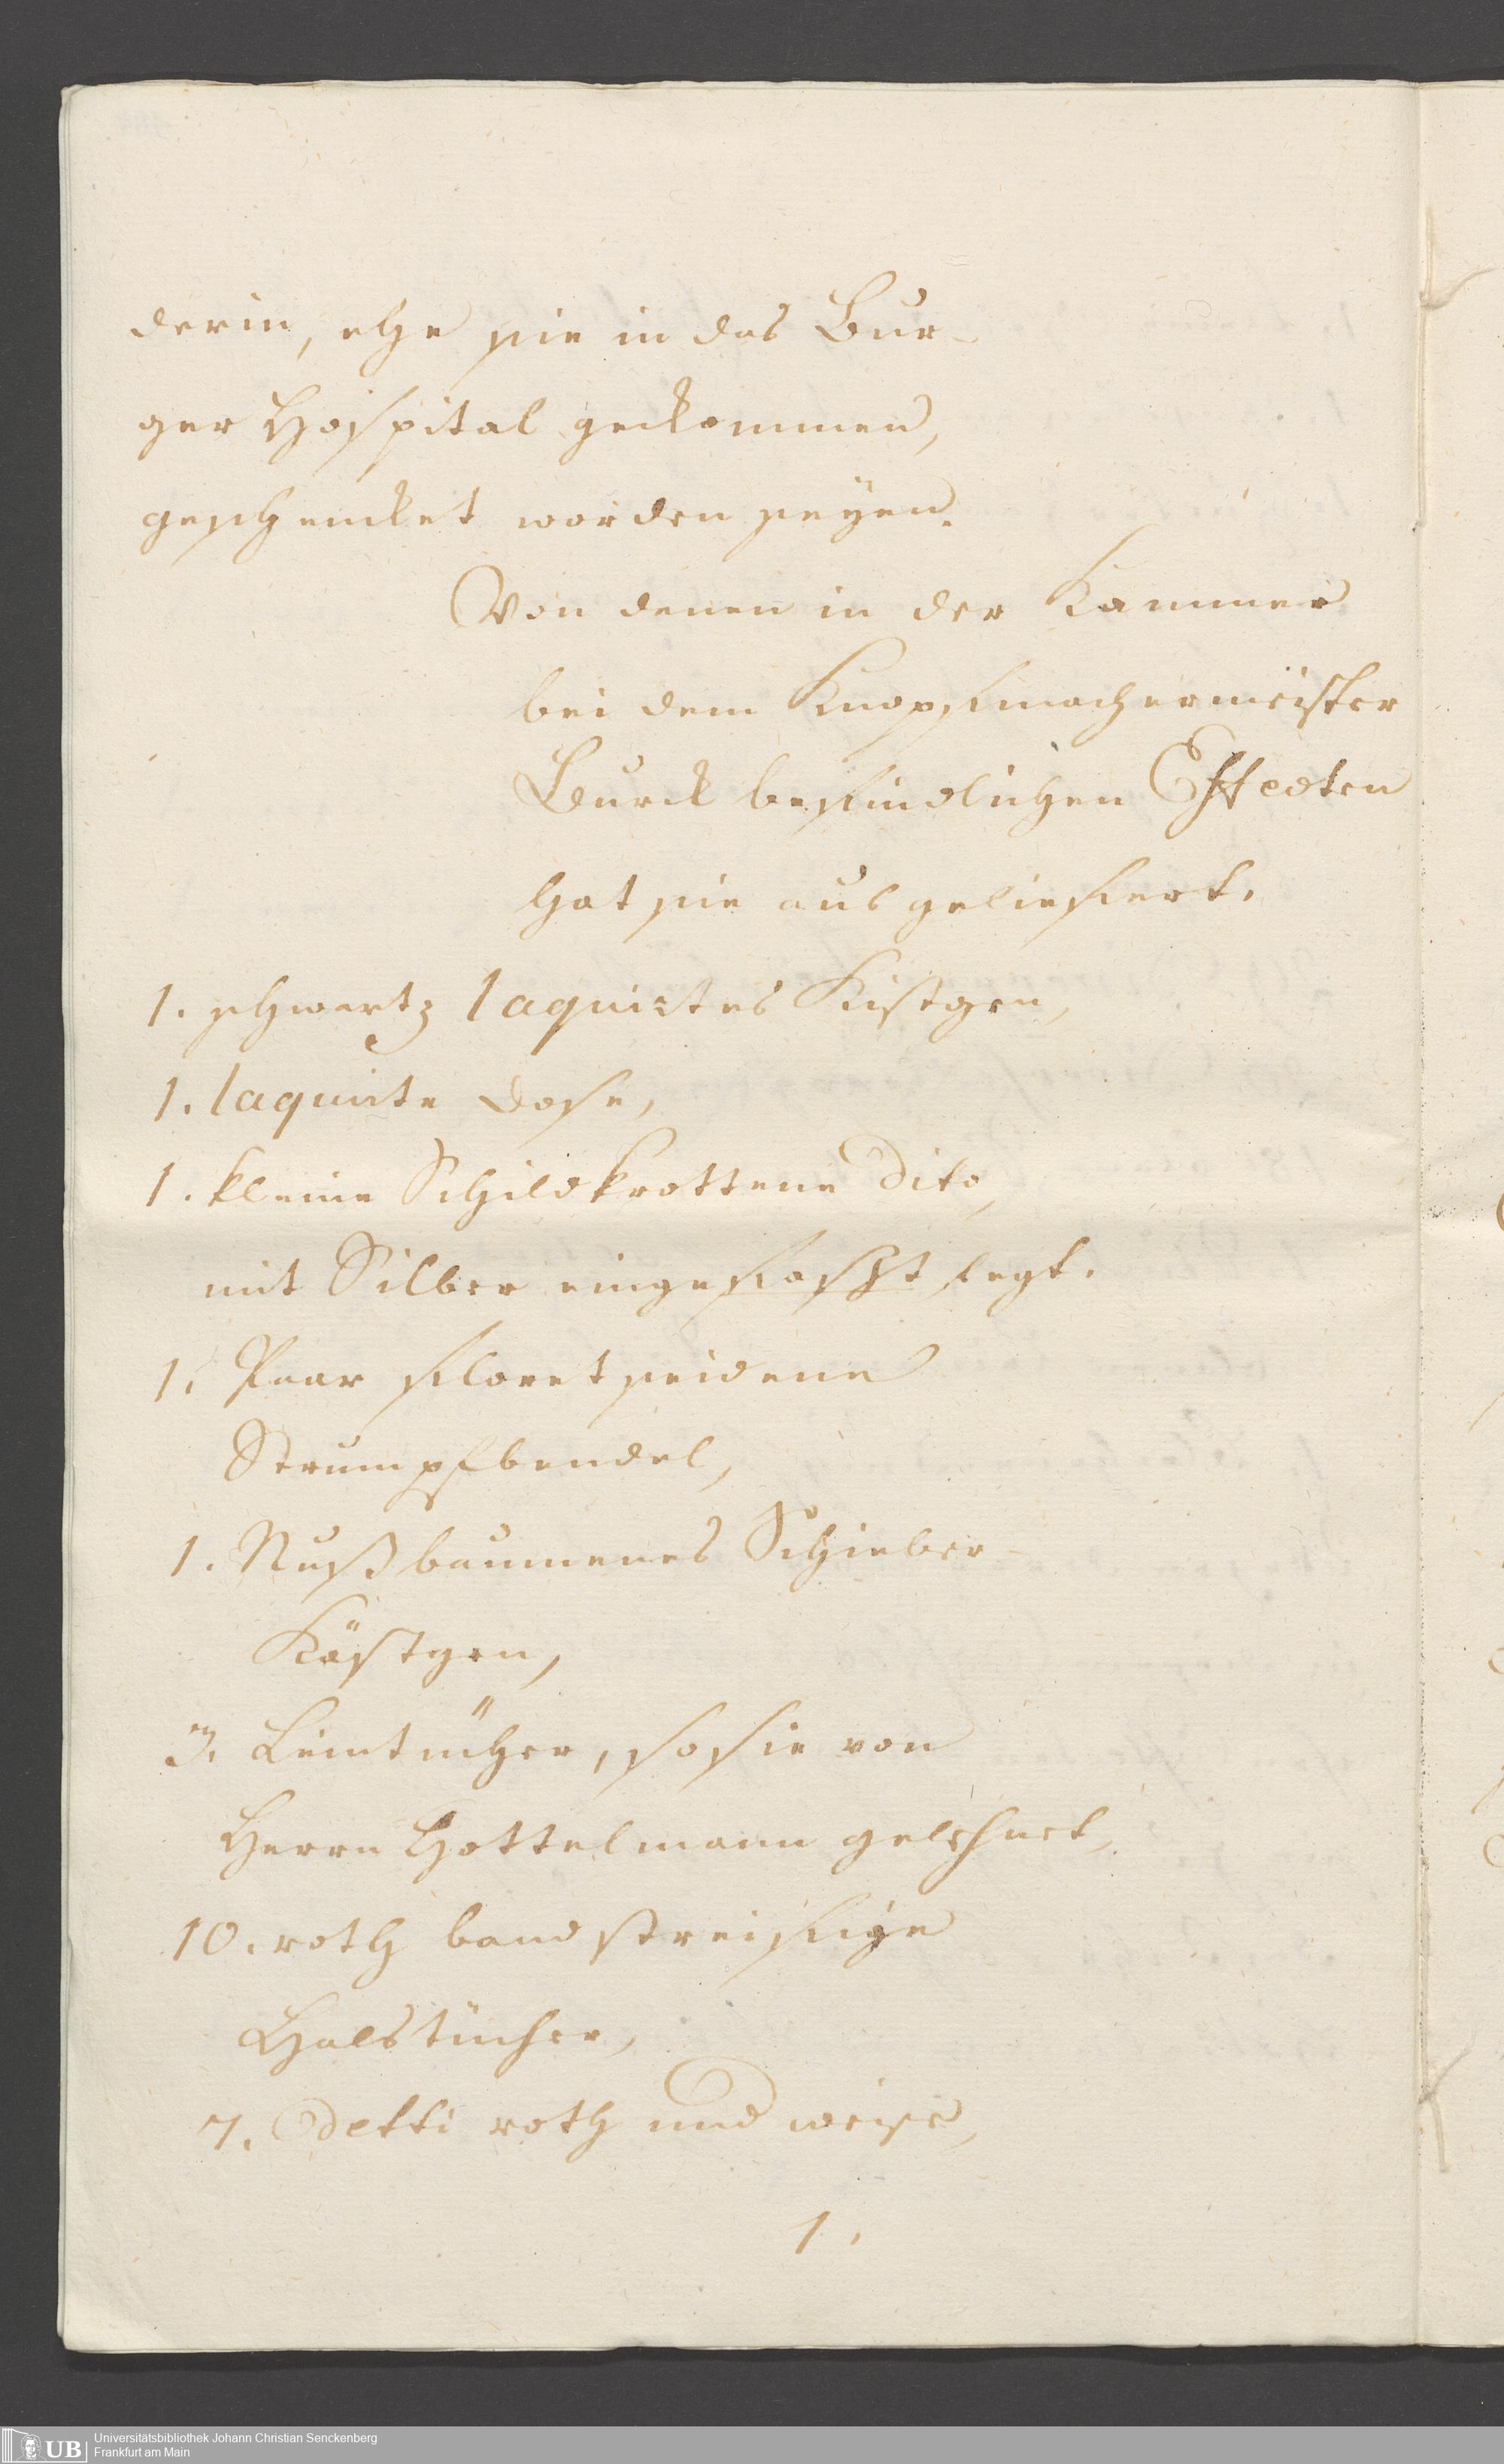 derin, ehe sie in das Bur-
ger Hospital gekommen,
geschencket worden seyen.
Von denen in der Kammer
bei dem Knopfmachermeister
Burck befindlichen Effecten
hat sie ausgeliefert.
1. schwartz laquirtes Kistgen,
1. laquirte Dose,
1. kleine Schildkrottene Dito,
mit Silber eingefasst legt.
1. Paar floret seidene
Strumpfbendel,
1. Nußbaumenes Schieber-
Kästgen,
3. Leintücher, so sie von
Herrn Hottelmann gelehnet,
10. roth bandstreifige
Halstücher,
7. detti roth und weise,
1.
UB Universitätsbibliothek Johann Christian Senckenberg
Frankfurt am Main